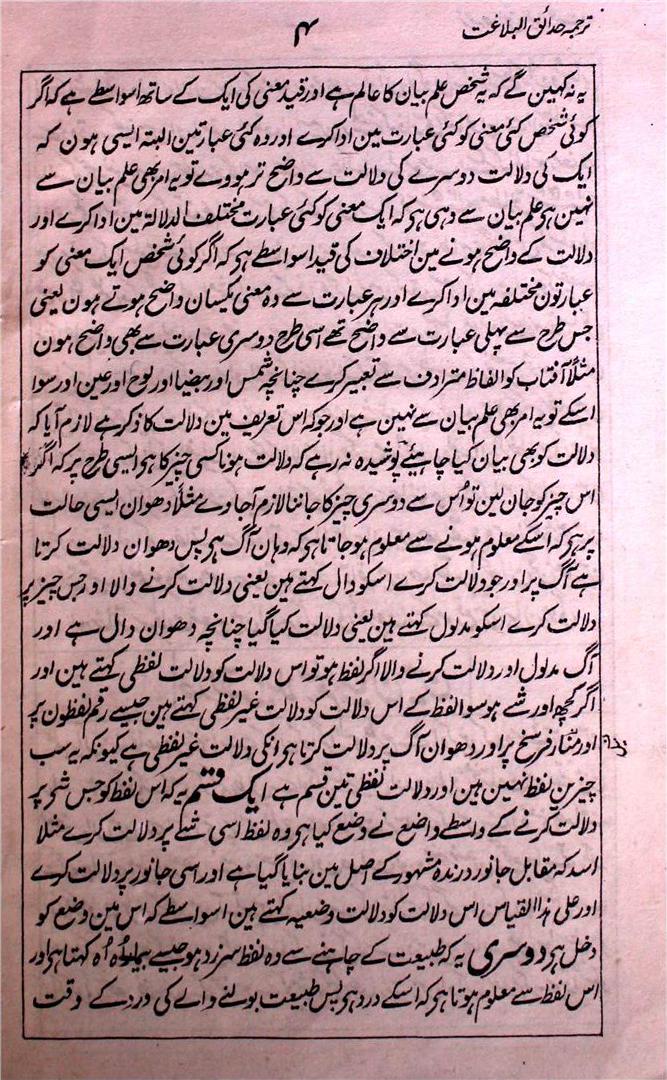 ترجمہ حدائق البلاغت
۴
یہ نہ کہین گے کہ یہ شخص علم بیان کا عالم ہے اور قید معنی کی ایک کے ساتھ اسواسطے ہے کہ اگر
کوئی شخص کئی معنی کو کئی عبارت مین ادا کرے اور وہ کئی عبارتین البتہ ایسی ہون کہ
ایک کی دلالت دوسرے کی دلالت سے واضح تر ہووے تو یہ امر بھی علم بیان سے
نہین ہر علم بیان سے وہی ہر کہ ایک معنی کو کئی عبارت مختلف الدلالۃ مین ادا کرے اور
دلالت کے واضح ہونے مین اختلاف کی قید اسواسطے ہر کہ اگر کوئی شخص ایک معنی کو
عبارتون مختلفہ مین ادا کرے اور ہر عبارت سے وہ معنی یکسان واضح ہوتے ہون یعنی
جس طرح سے پہلی عبارت سے واضح تھے اسی طرح دوسری عبارت سے بھی واضح ہون
مثلاً آفتاب کو الفاظ مترادف سے تعبیر کرے چنانچہ شمس اور بیضا اور لوح اور عین اور سوا
اسکے تو یہ امر بھی علم بیان سے نہین ہے اور جو کہ اس تعریف مین دلالت کا ذکر ہے لازم آیا کہ
دلالت کو بھی بیان کیا چاہیئے پوشیدہ نہ رہے کہ دلالت ہونا کسی چیز کا ہر ایسی طرح پر کہ اگر
اس چیز کو جان لین تو اُس سے دوسری چیز کا جاننا لازم آجاوے مثلاً دھوان ایسی حالت
پر ہر کہ اسکے معلوم ہونے سے معلوم ہوجاتا ہر کہ وہان آگ ہر پس دھوان دلالت کرتا
ہے آگ پر اور جو دلالت کرے اسکو دال کہتے ہین یعنی دلالت کرنے والا اور جس چیز پر
دلالت کرے اسکو مدلول کہتے ہین یعنی دلالت کیا گیا چنانچہ دھوان دال ہے اور
آگ مدلول اور دلالت کرنے والا اگر لفظ ہو تو اس دلالت کو دلالت لفظی کہتے ہین اور
اگر کچھ اور شے ہو سوا لفظ کے اس دلالت کو دلالت غیر لفظی کہتے ہین جیسے رقم لفظون پر
اور منار فرسخ پر اور دھوان آگ پر دلالت کرتا ہر انکی دلالت غیر لفظی ہے کیونکہ یہ سب
چیزین لفظ نہین ہین اور دلالت لفظی تین قسم ہے ایک قسم یہ کہ اس لفظ کو جس شے پر
دلالت کرنے کے واسطے واضع نے وضع کیا ہر وہ لفظ اسی شے پر دلالت کرے مثلا
اسد کہ مقابل جانور درندہ مشہور کے اصل مین بنایا گیا ہے اور اسی جانور پر دلالت کرے
اور علی ہذا القیاس اس دلالت کو دلالت وضعیہ کہتے ہین اسواسطے کہ اس مین وضع کو
دخل ہر دوسری یہ کہ طبیعت کے چاہنے سے وہ لفظ سرزد ہو جیسے بیمار اُہ اُہ کہتا ہر اور
اس لفظ سے معلوم ہوتا ہر کہ اسکے درد ہر پس طبیعت بولنے والے کی درد کے وقت